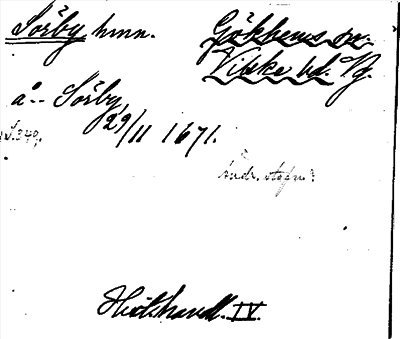 Sörby hmn. Gökhems sn.
Vilske hd. Vg.
å -- Sörby,
29/11 1671.
s. 349.
ändr. stafn.:
Hist. handl. IV.